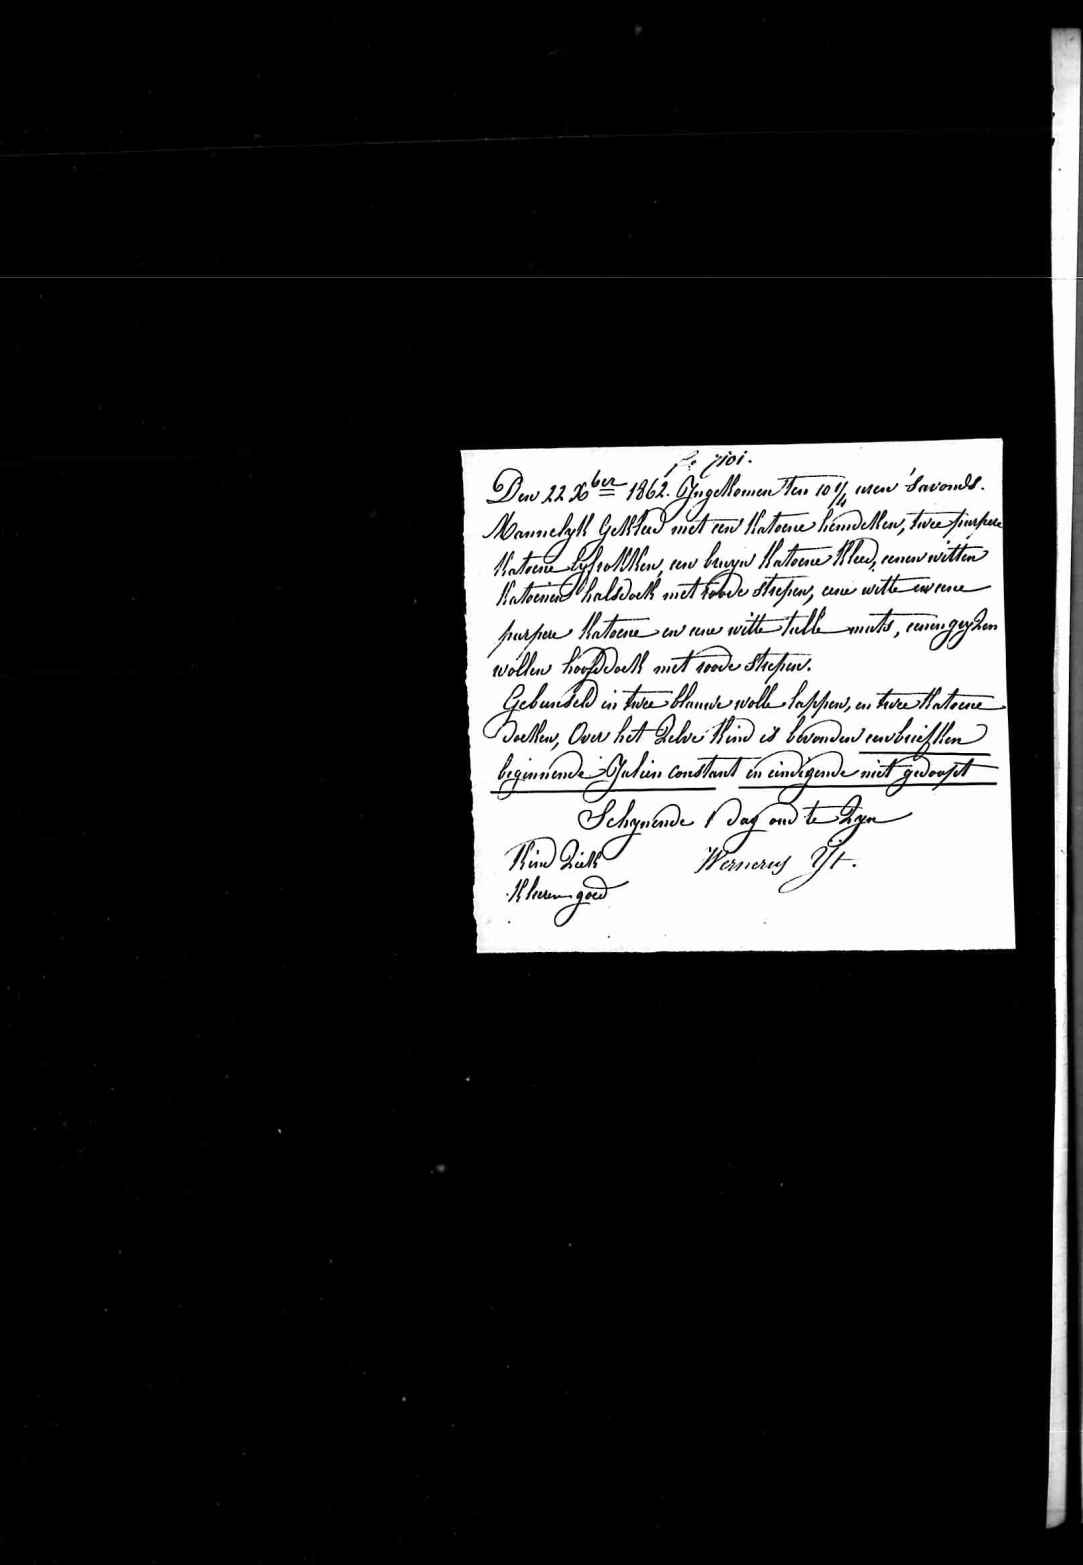 f° 7101.
Den 22 Xber 1862. Ingekomen ten 10 1/4 uren 's avonds.
Mannelyk Gekleed met een Katoene hemdeken, twee purpere
Katoene lyfrokken, een bruyn Katoene Kleed, eenen witten
Katoenen halsdoek met roode strepen, eene witte en eene
purpere Katoene en eene witte tulle muts, eenen gryzen
wollen hoofddoek met roode strepen.
Gebunseld in twee blauwe wolle lappen, en twee Katoene
doeken, Over het Zelve Kind is bevonden een briefken
beginnende: Julien constant en eindigende niet gedoopt
Schynende 1 Dag oud te Zyn
Kind Ziek
Wernerus Yt.
Kleeren goed